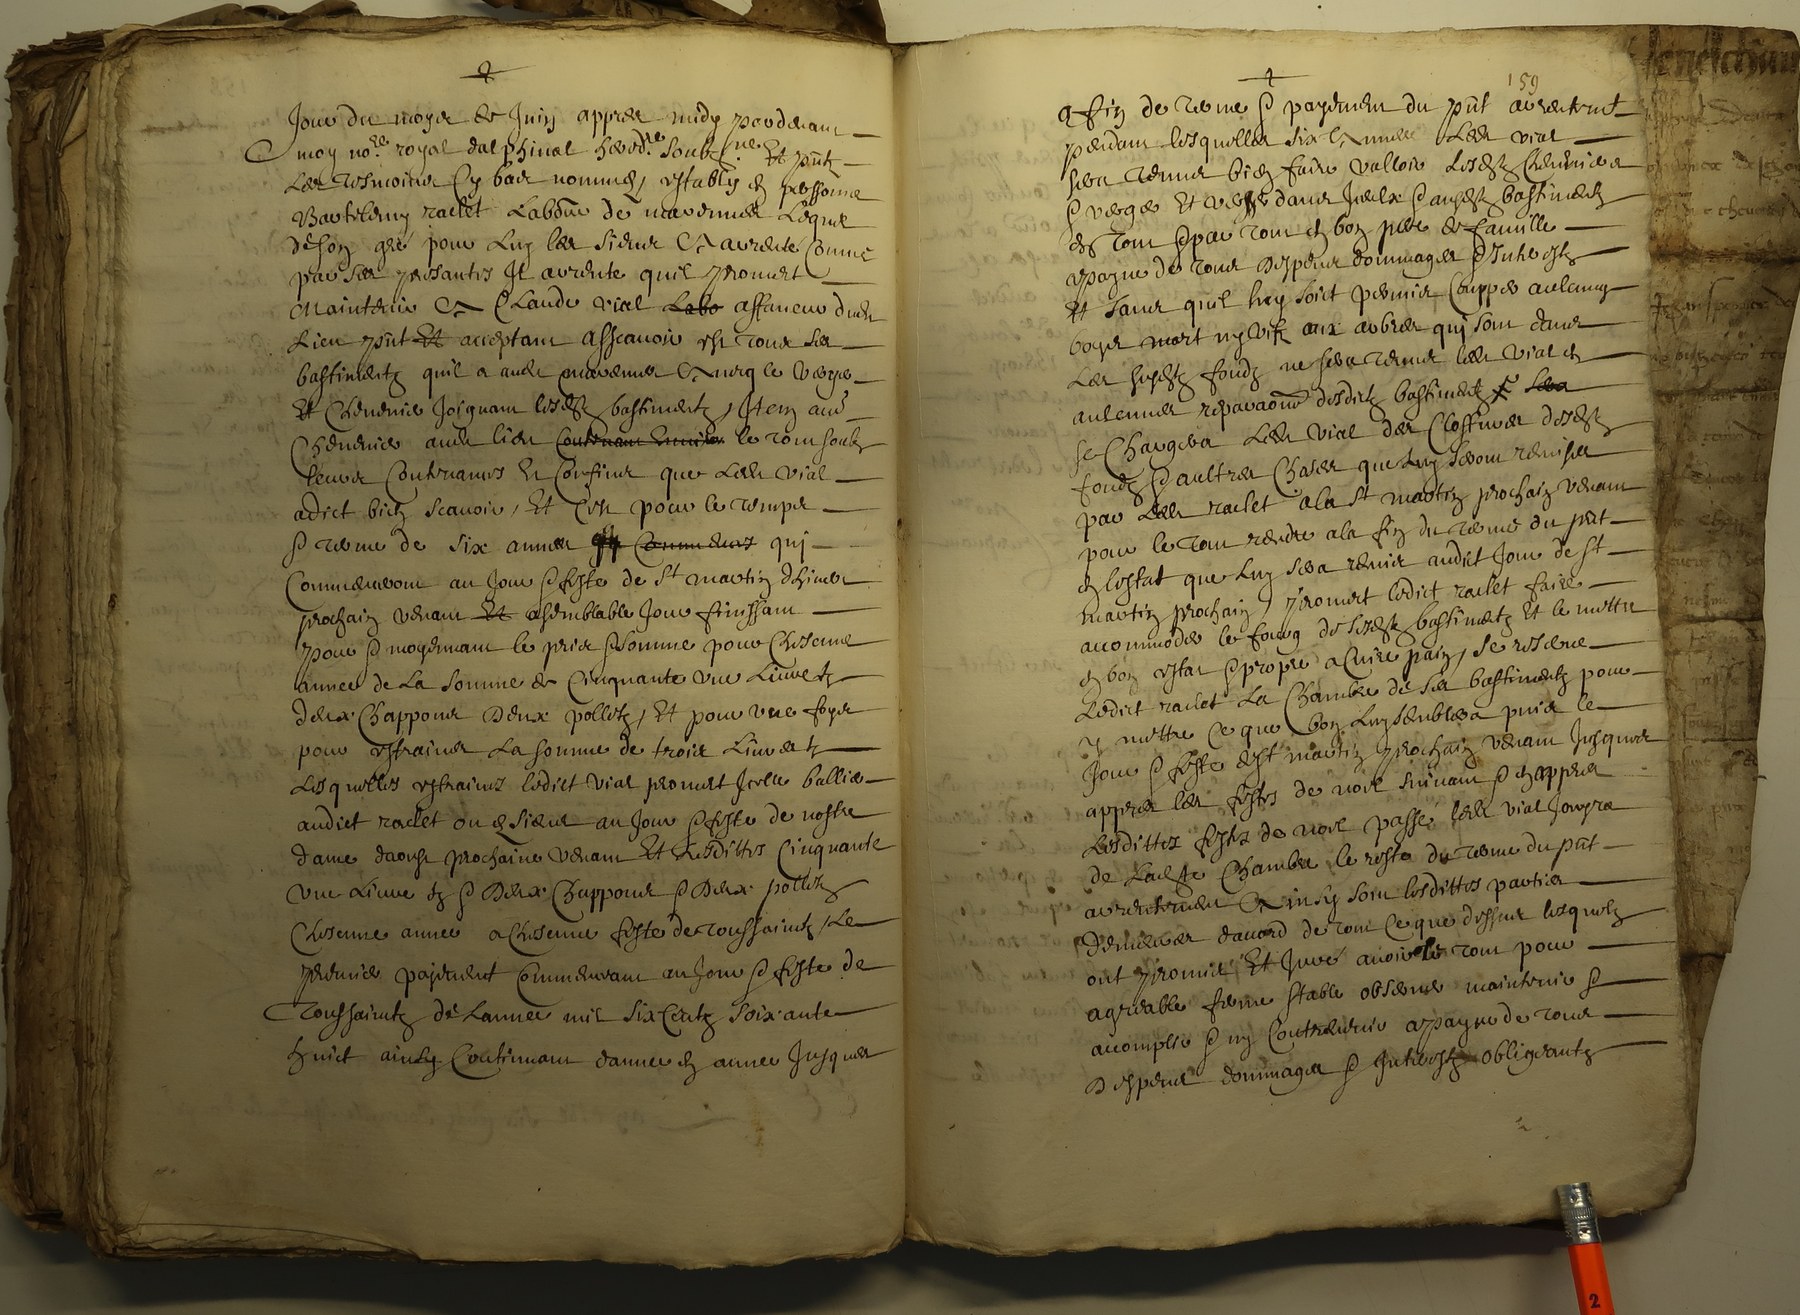 Jour du moys de Juin appres midy par devant
moy no.re royal dalphinal hered.re soubz.ne Et p͠ntz
Les tesmoins Cy bas nommes, estably en personne
Bartelemy raclet Labo.ur de mavennes Lequel
de son gré pour Luy les siens A arrenté Comme
par ses presantes Il arrente quil promet
Maintenir A Claude vial affaneur dud
Lieu p͠nt acceptant Asscavoir est tous ses
bastimentz quil a aud mavennes Avecq le verger
Et Chenevier Joignant lesd bastimentz, Item au͠e
Chenevier aud lieu le tout soubz
leurs Contenances Et Confins que Led vial
a dict bien scavoir, Et C'est pour le temps
& terme de six annees qui
Commenceront au Jour & feste de St martin dhiver
prochain venant a semblable Jour finissant
Pour & moyenant le pris & somme pour Chescune
annee de La somme de Cinquante une Livre tz
deux Chappons Deux polletz, Et pour une foys
pour estraines La somme de trois Livres tz
Lesquelles estraines ledict vial promet Icelle ballier
audict raclet ou es siens au Jour & feste de nostre
dame daoust prochaine venant Et Lesdittes Cinquante
une Livre tz & Deux Chappons & Deux polletz
Chescune annee a Chescune feste de toussaintz, Le
premier payement Commenceant au Jour & feste de
Toussaintz de Lannee mil six Centz soixante
huict ainsy Continuant dannee en annee Jusques
159
a fin de terme & payement du p͠nt arrentemt
pendant lesquelles six Annees Led vial
sera tenus bien faire valloir lesd Chenevier
& verger Et dans Iceux & ausd bastimentz
en tout & par tout en bon pere de famille
a payne de tous Despens dommages & Interestz
Et sans quil luy soict permis Coupper aulcung
boys mort ny vif aux arbres qui sont dans
Les susd fondz ne sera tenus led vial en
aulcunes reparaons desdictz bastimentz
se Chargera Led vial des Clossures desd
fondz & aultres Chases que Luy seront remises
par Led raclet a la St martin prochain venant
pour le tout rendre a la fin du terme du p͠nt
en lestat que Luy sera remis audict Jour de St
martin prochain, promet ledict raclet faire
accommoder le fourg desd bastimentz Et le mettre
en bon estat & propre a Cuire pain, se reserve
Ledict raclet La Chambre de ses bastimentz pour
y mettre Ce que bon Luy semblera puis le
Jour & feste de St martin prochain venant Jusques
appres les festes de noel suivant & en appres
Lesdittes festes de noel passé led vial Jouyra
de Lad Chambre le reste du terme du p͠nt
arrentement Ainsy sont lesdittes parties
demeurees daccord de tout Ce que dessus lesquels
ont promis Et Juré avoir le tout pour
agreable ferme stable observer maintenir &
accomplir & ny Contrevenir a payne de tous
Despens dommages & Interestz obligeantz